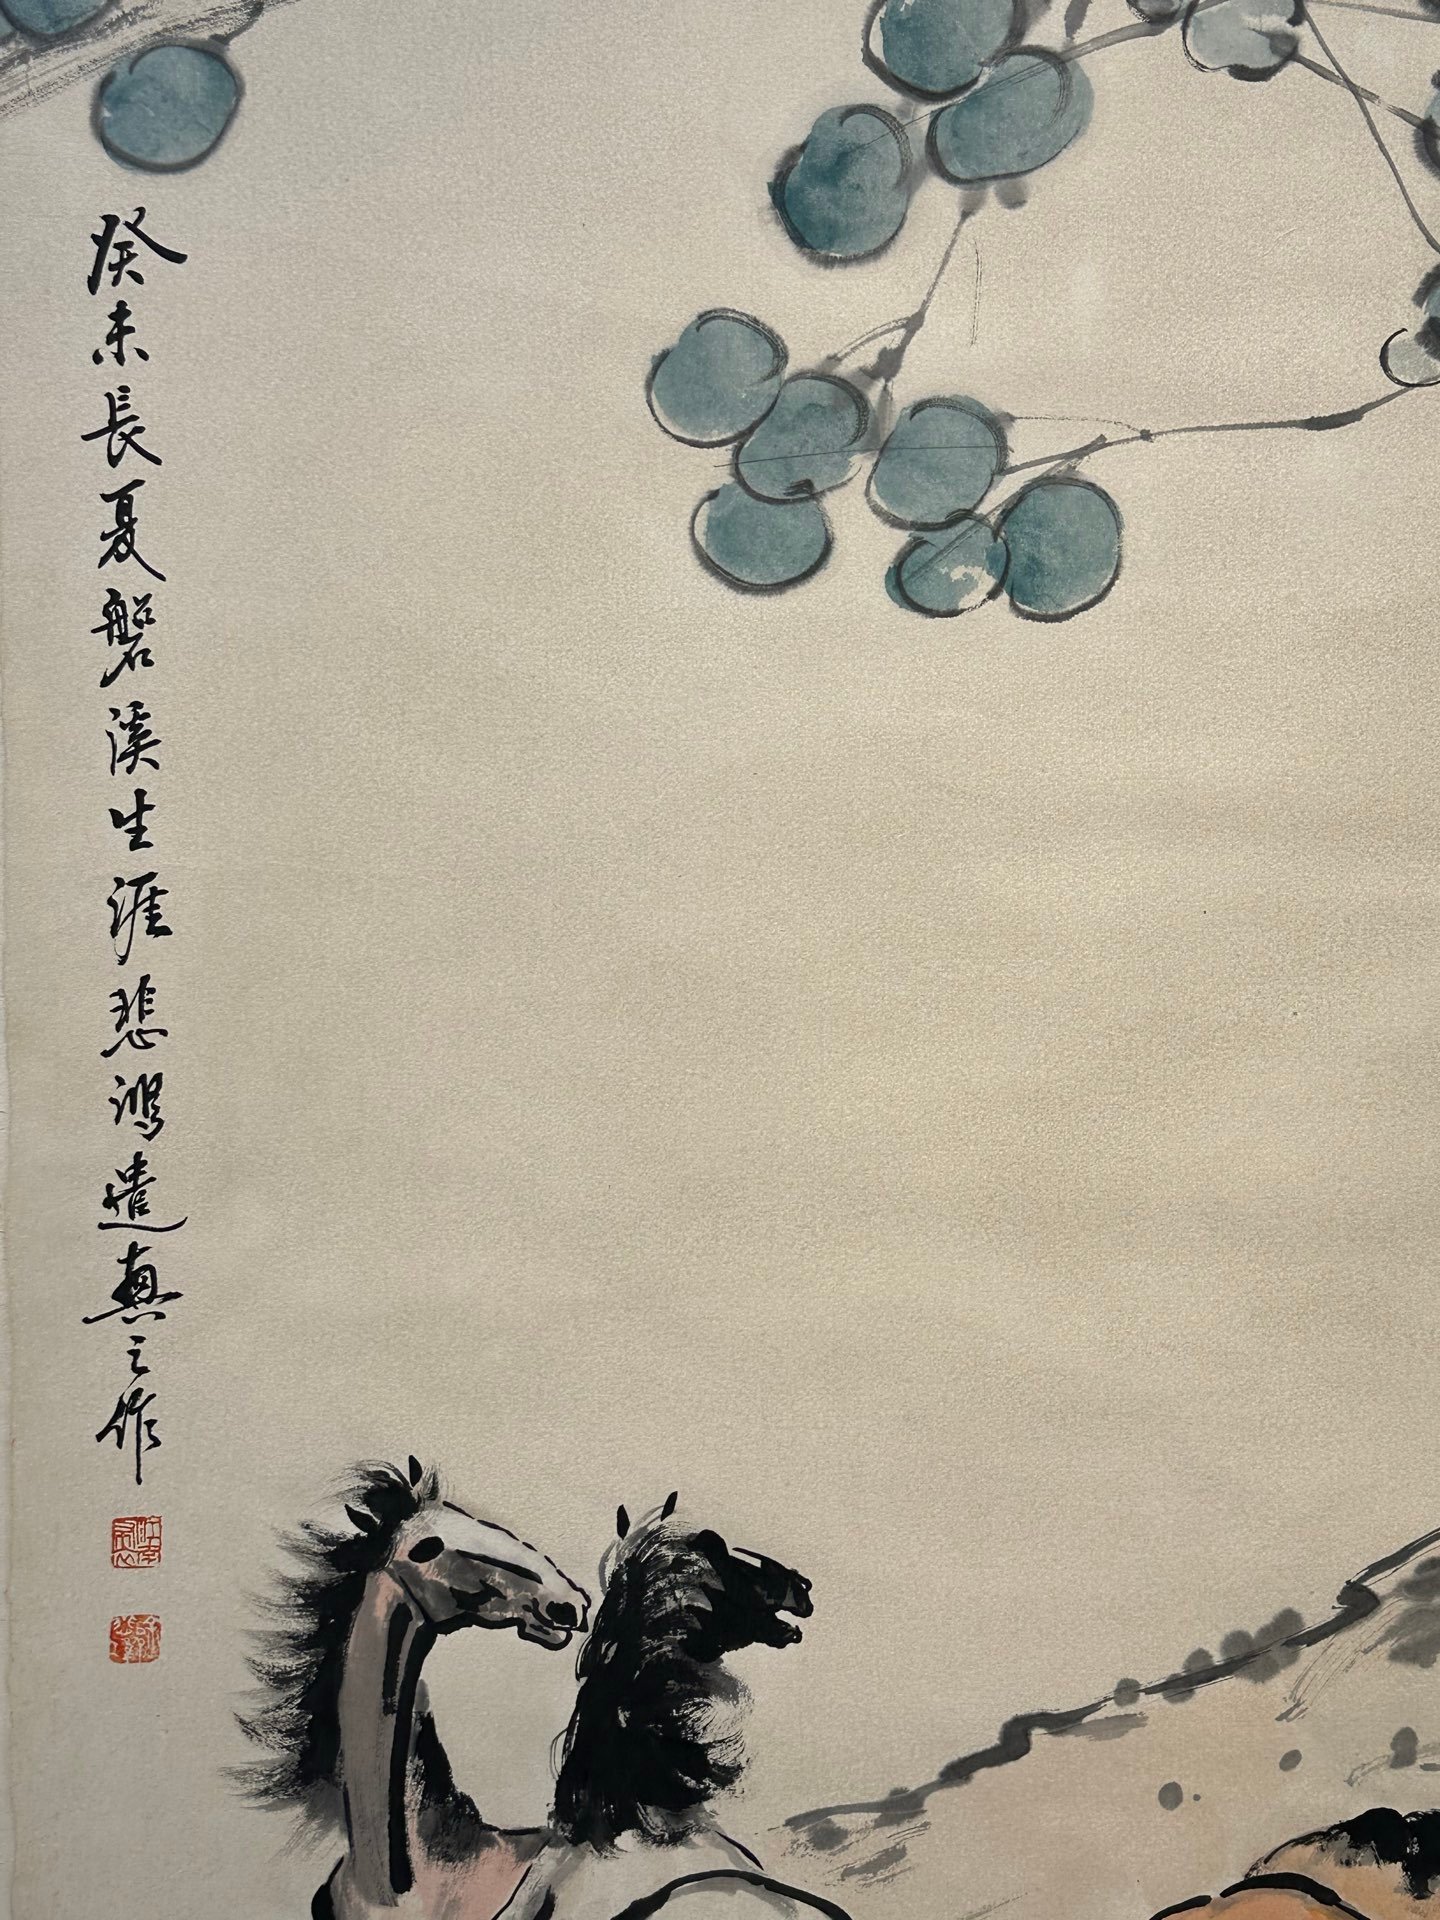 癸未長夏磐溪生涯悲鴻遣興之作